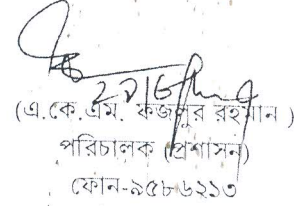 (এ.কে.এম. ফজলুর রহমান )
পরিচালক (প্রশাসন)
ফোন-৯৫৮৬২১৩